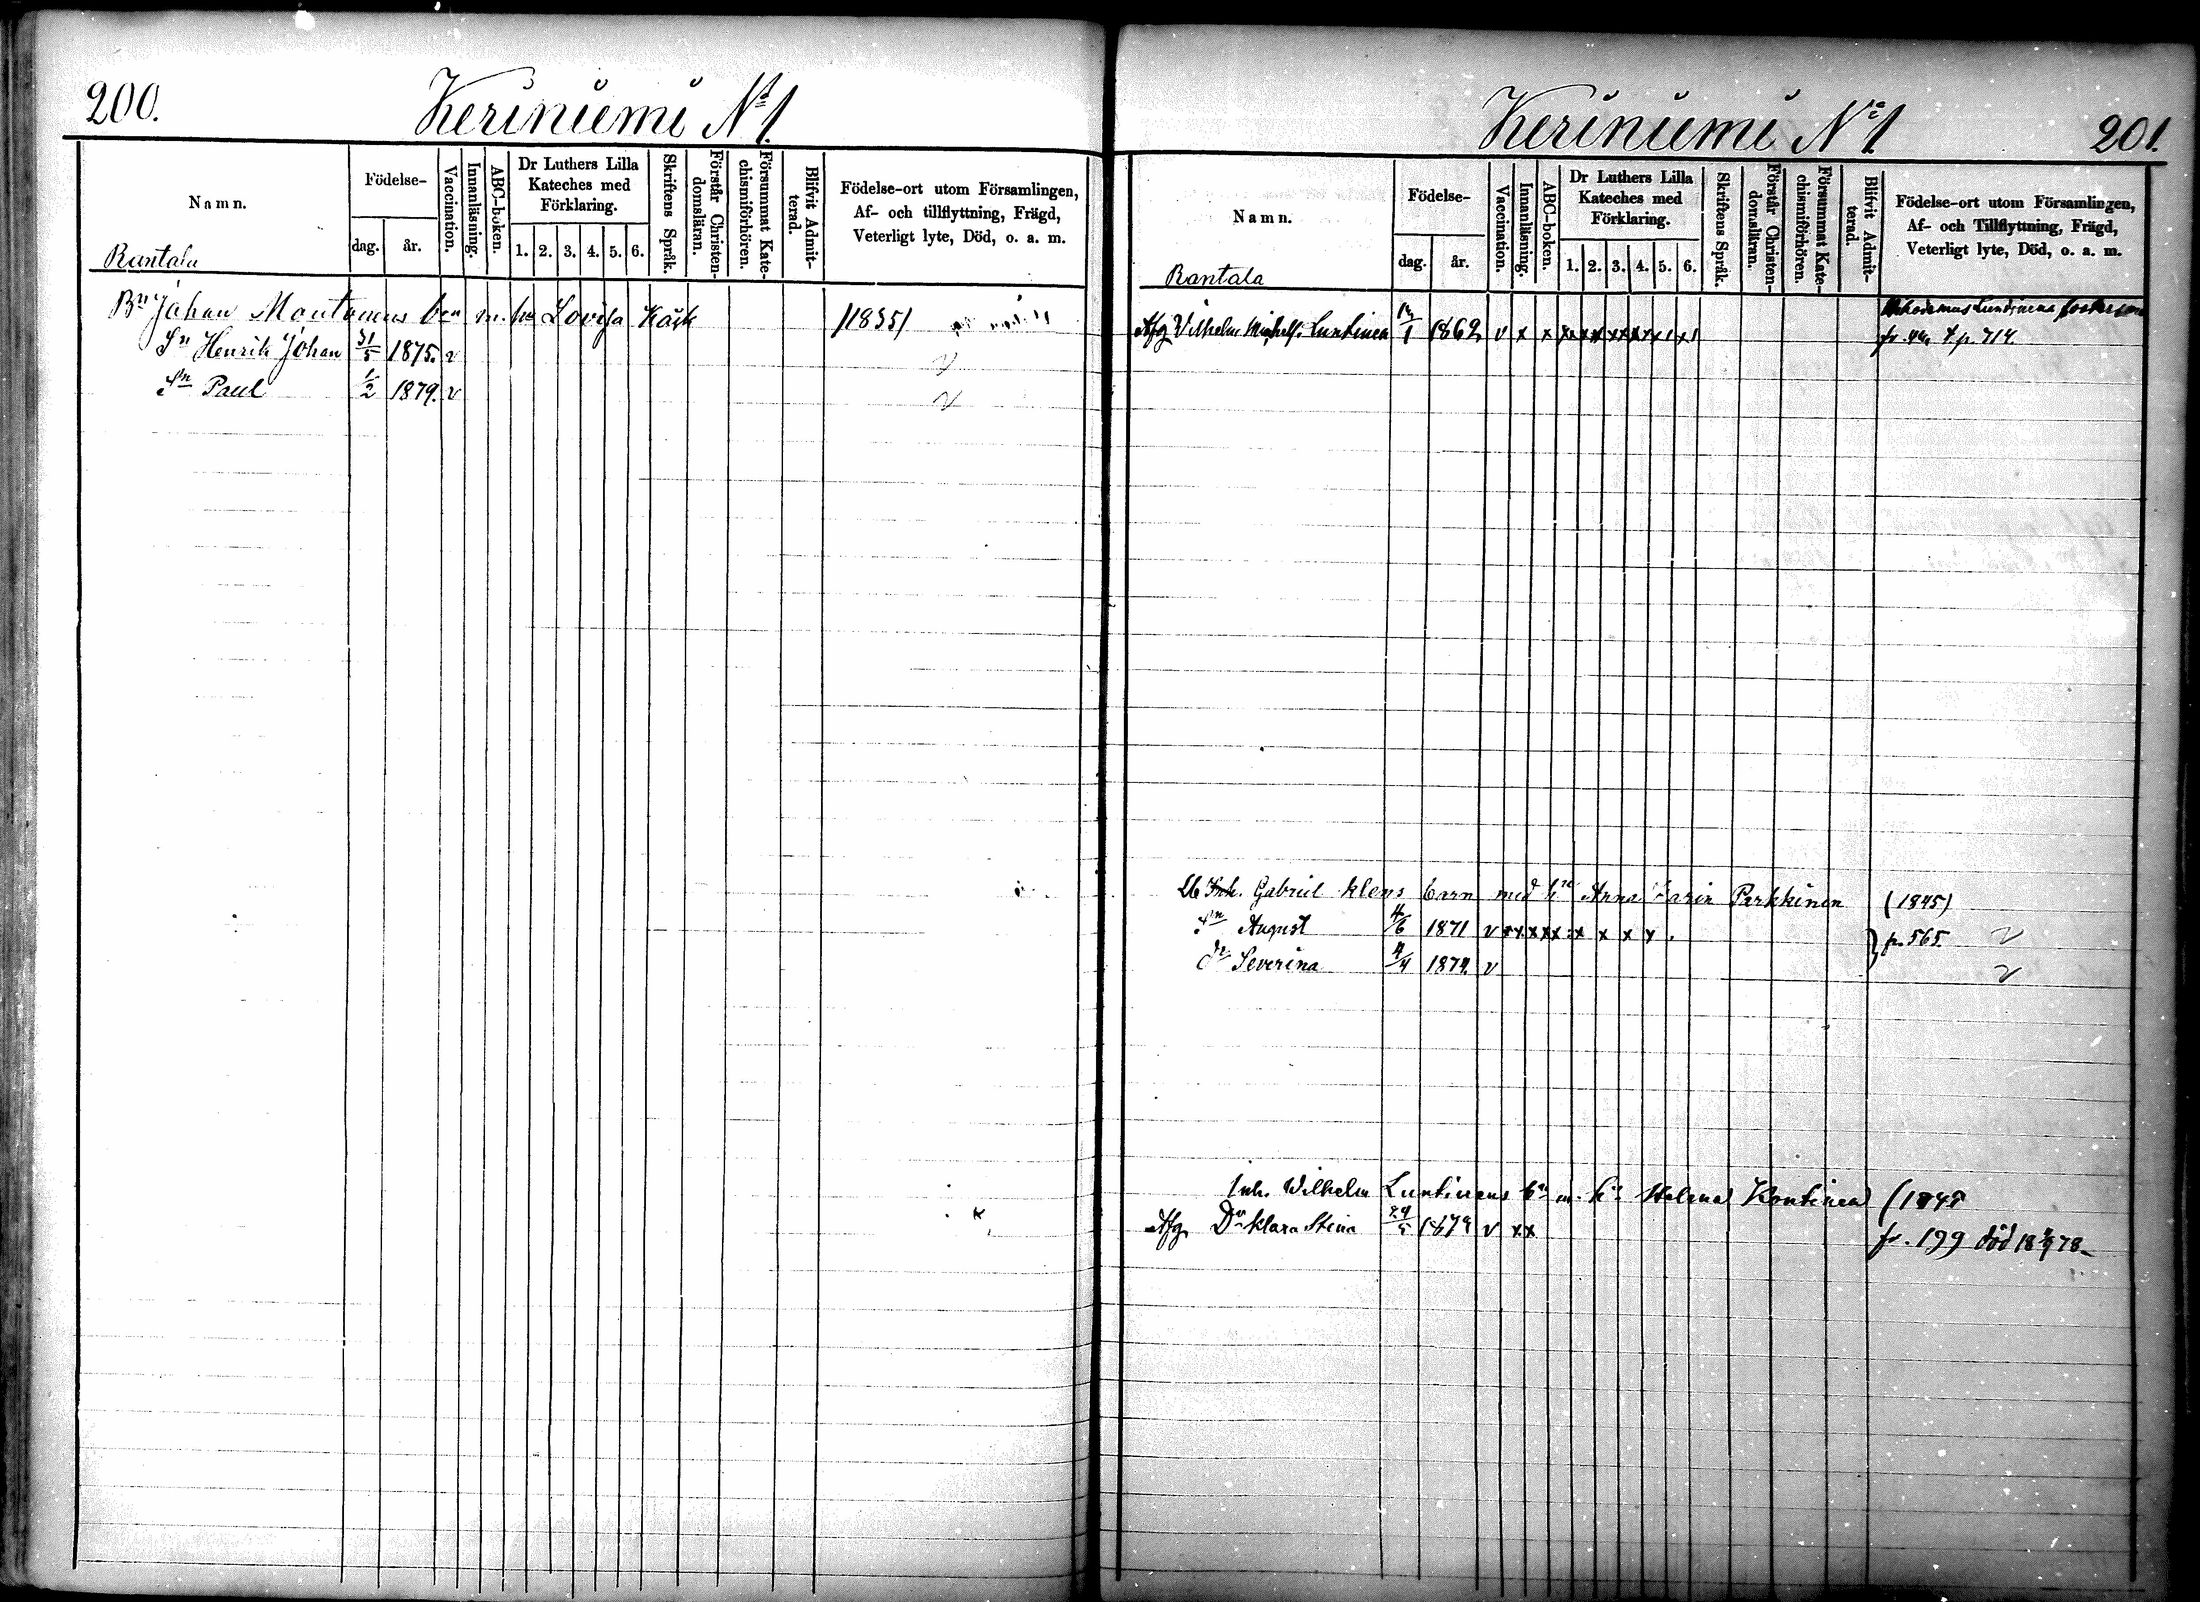 200.
Keriniemi No 1.
Namn.
Födelse-
dag.
år.
Vaccination.
Innanläsning.
ABC-boken.
Dr Luthers Lilla
Kateches med
Förklaring.
1. 2. 3. 4. 5. 6.
Skriftens Språk.
Förstår Christen-
domsläran.
Försummat Kate-
chismiförhören.
Blifvit Admit-
terad.
Födelse-ort utom Församlingen,
Af- och tillflyttning, Frägd,
Veterligt lyte, Död, o. a. m.
Rantala
Bn Johan Montonens bn m. hu Lovisa Käsk (1835)
Sn Henrik Johan 31/5 1875. v
Sn Paul 1/2 1879. v
Keriniemi No 1.
201.
Namn.
Födelse-
dag.
år.
Vaccination.
Innanläsning.
ABC-boken.
Dr Luthers Lilla
Kateches med
Förklaring.
1. 2. 3. 4. 5. 6.
Skriftens Språk.
Förstår Christen-
domsläran.
Försummat Kate-
chismiförhören.
Blifvit Admit-
terad.
Födelse-ort utom Församlingen,
Af- och Tillflyttning, Frägd,
Veterligt lyte, Död, o. a. m.
Rantala
Afg Vilhelm Michelss. Luntinen 1862 v x x x x x x x x x
p. 714.
Inh. Gabriel Klens barn med hu Anna Karin Parkkinen (1845)
Sn August 4/6 1871 v x x x x x x x x x p. 565. v
Dr Severina 4/4 1874 v v
Inh. Wilhelm Luntinens bn m. hu Helena Kontinen (1845
Afg Dr Klara Stina 29/5 1874 v x x fr. 199 död 78